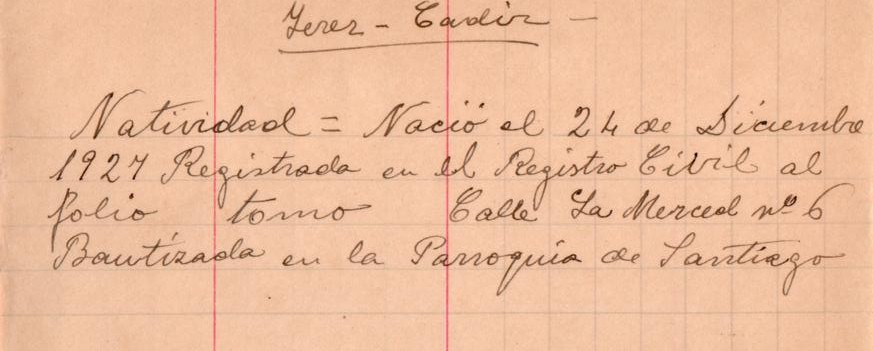 Jerez - Cadiz -
Natividad = Nació el 24 de Diciembre
1927 Registrada en el Registro Civil al
folio tomo Calle La Merced nº 6
Bautizada en la Parroquia de Santiago